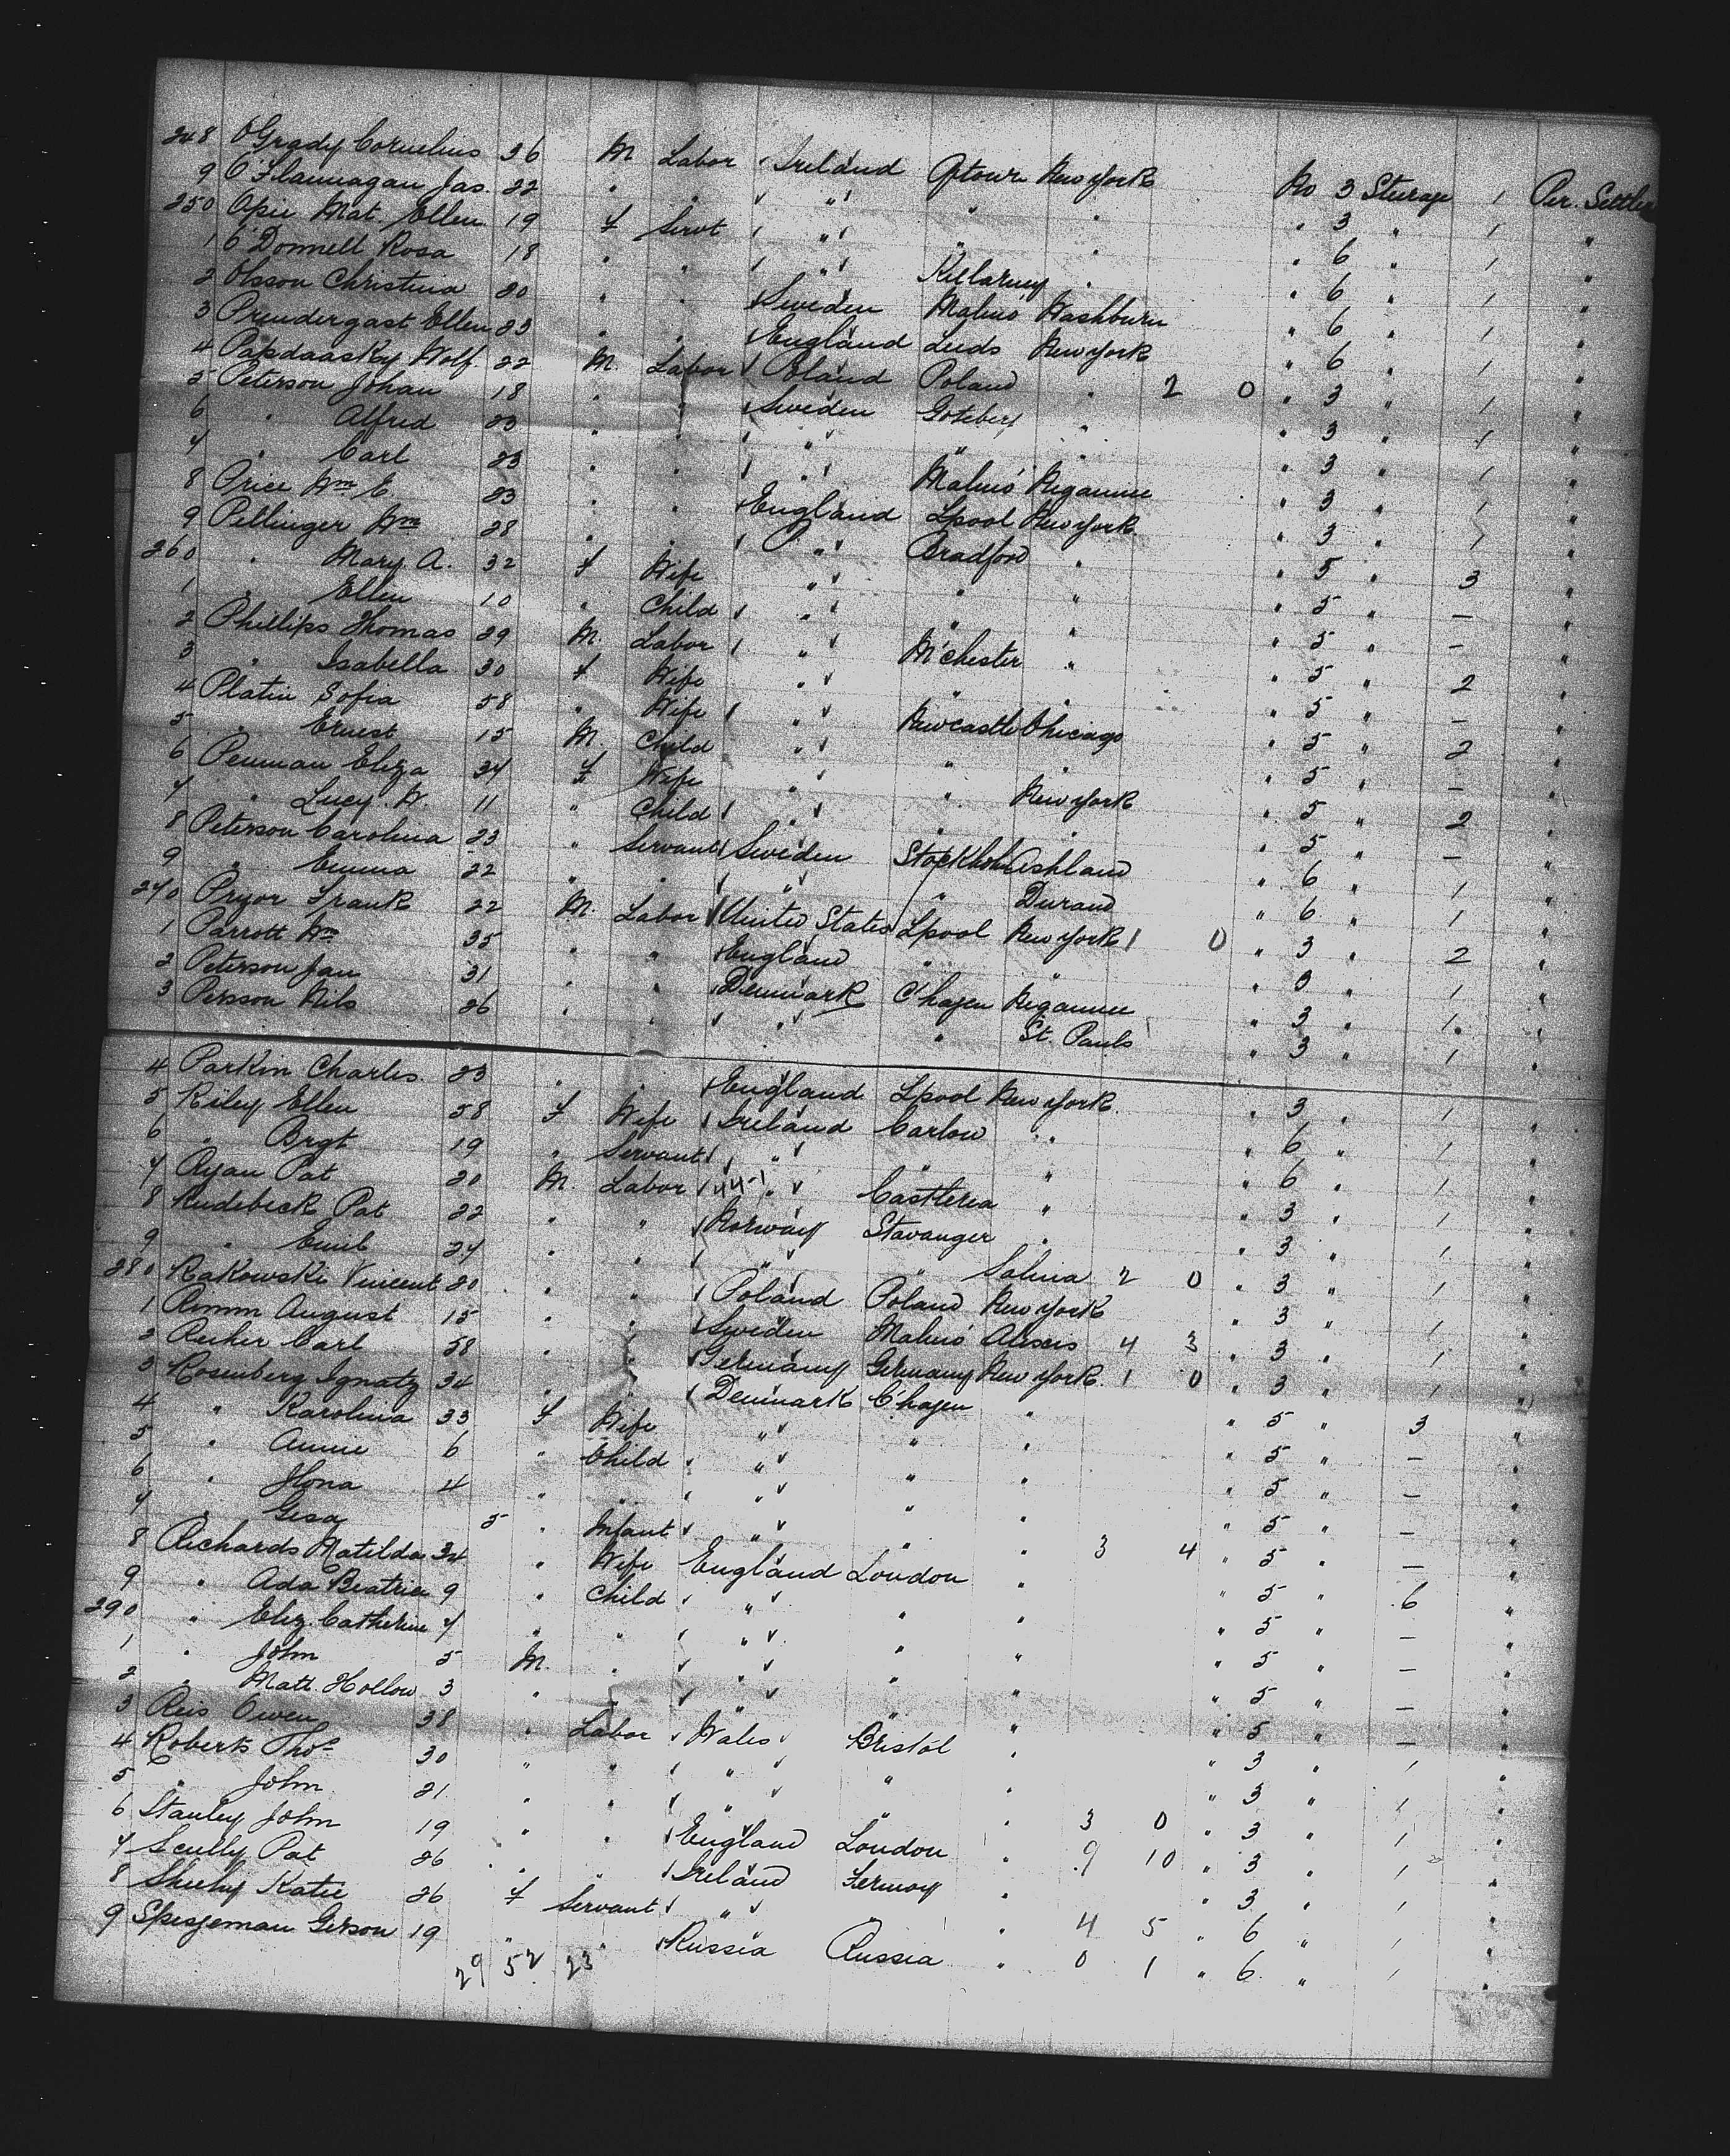 248 O'Grady Cornelius 26 M Labor Ireland Qtown New York No 3 Sturage 1 Per. Settler
9 O'Flannagan Jas. 22 " " " " " " 3 " 1 "
250 Opie Mat. Ellen 19 F Servt " " " " 6 " 1 "
1 O'Donnell Rosa 18 " " " Killarney " " 6 " 1 "
2 Olsson Christina 20 " " Sweden Malmö Washburn " 6 " 1 "
3 Prendergast Ellen 23 " " England Leeds New York " 6 " 1 "
4 Papdaasky Wolf. 22 M. Labor Poland Poland " 2 0 " 3 " 1 "
5 Peterson Johan 18 " " Sweden Goteberg " " 3 " 1 "
6 " Alfred 23 " " " " " " 3 " 1 "
7 " Carl 23 " " " Malmö Negaunee " 3 " 1 "
8 Price Wm E. 23 " " England Lpool New York " 3 " 1 "
9 Pellinger Wm 28 " " " Bradford " " 5 " 3 "
260 " Mary A. 32 F Wife " " " " 5 " — "
1 " Ellen 10 " Child " " " " 5 " — "
2 Phillips Thomas 29 M. Labor " M'chester " " 5 " 2 "
3 " Isabella 30 F Wife " " " " 5 " — "
4 Platin Sofia 58 " Wife " Newcastle Chicago " 5 " 2 "
5 " Ernest 15 M. Child " " " " 5 " — "
6 Penman Eliza 34 F Wife " " New York " 5 " 2 "
7 " Lucy W. 11 " Child " " " " 5 " — "
8 Peterson Carolina 23 " Servant Sweden Stockholm Ashland " 6 " 1 "
9 " Emma 22 " " " " Durand " 6 " 1 "
270 Pryor Frank 22 M. Labor United States Lpool New York 1 0 " 3 " 2 "
1 Parrott Wm 35 " " England " " " 3 " 1 "
2 Peterson Jan 31 " " Denmark C'hagen Negaunee " 3 " 1 "
3 Persson Nils 26 " " " " St. Pauls " 3 " 1 "
4 Parkin Charles. 23 " " England Lpool New York. " 3 " 1 "
5 Riley Ellen 58 F Wife Ireland Carlow " " 6 " 1 "
6 " Brgt 19 " Servant " " " " 6 " 1 "
7 Ryan Pat 20 M. Labor " Castlerea " " 3 " 1 "
8 Rudebeck Pat 22 " " Norway Stavanger " " 3 " 1 "
9 " Emil 24 " " " " Salina 2 0 " 3 " 1 "
280 Rakowski Vincent 20 " " Poland Poland New York " 3 " 1 "
1 Rimm August 15 " " Sweden Malmö 4 3 " 3 " 1 "
2 Carl 58 " " Germany Germany New York. 1 0 " 3 " 1 "
3 Rosenberg Ignatz 34 " " Denmark C'hagen " " 5 " 3 "
4 " Karolina 33 F Wife " " " " 5 " — "
5 " Annie 6 " Child " " " " 5 " — "
6 " Ilona 4 " " " " " " 5 " — "
7 " Gesa 5 " Infant " " " 3 4 " 5 " — "
8 Richards Matilda 34 " Wife England London " " 5 " 6 "
9 " Ada Beatrice 9 " Child " " " " 5 " — "
290 " Eliz. Catherine 7 " " " " " " 5 " — "
1 " John 5 M. " " " " " 5 " — "
2 " Matt. Hollow 3 " " " " " " 5 " — "
3 Reis Owen 38 " Labor Wales Bristol " " 3 " 1 "
4 Roberts Thos 30 " " " " " " 3 " 1 "
5 " John 21 " " " " " 3 0 " 3 " 1 "
6 Stanley John 19 " " England London " 9 10 " 3 " 1 "
7 Scully Pat 26 " " Ireland Fermoy " " 3 " 1 "
8 Sheehy Katie 26 F Servant " " " 4 5 " 6 " 1 "
9 Spiszeman Gerson 19 " " Russia Russia " 0 1 " 6 " 1 "
29 52 23